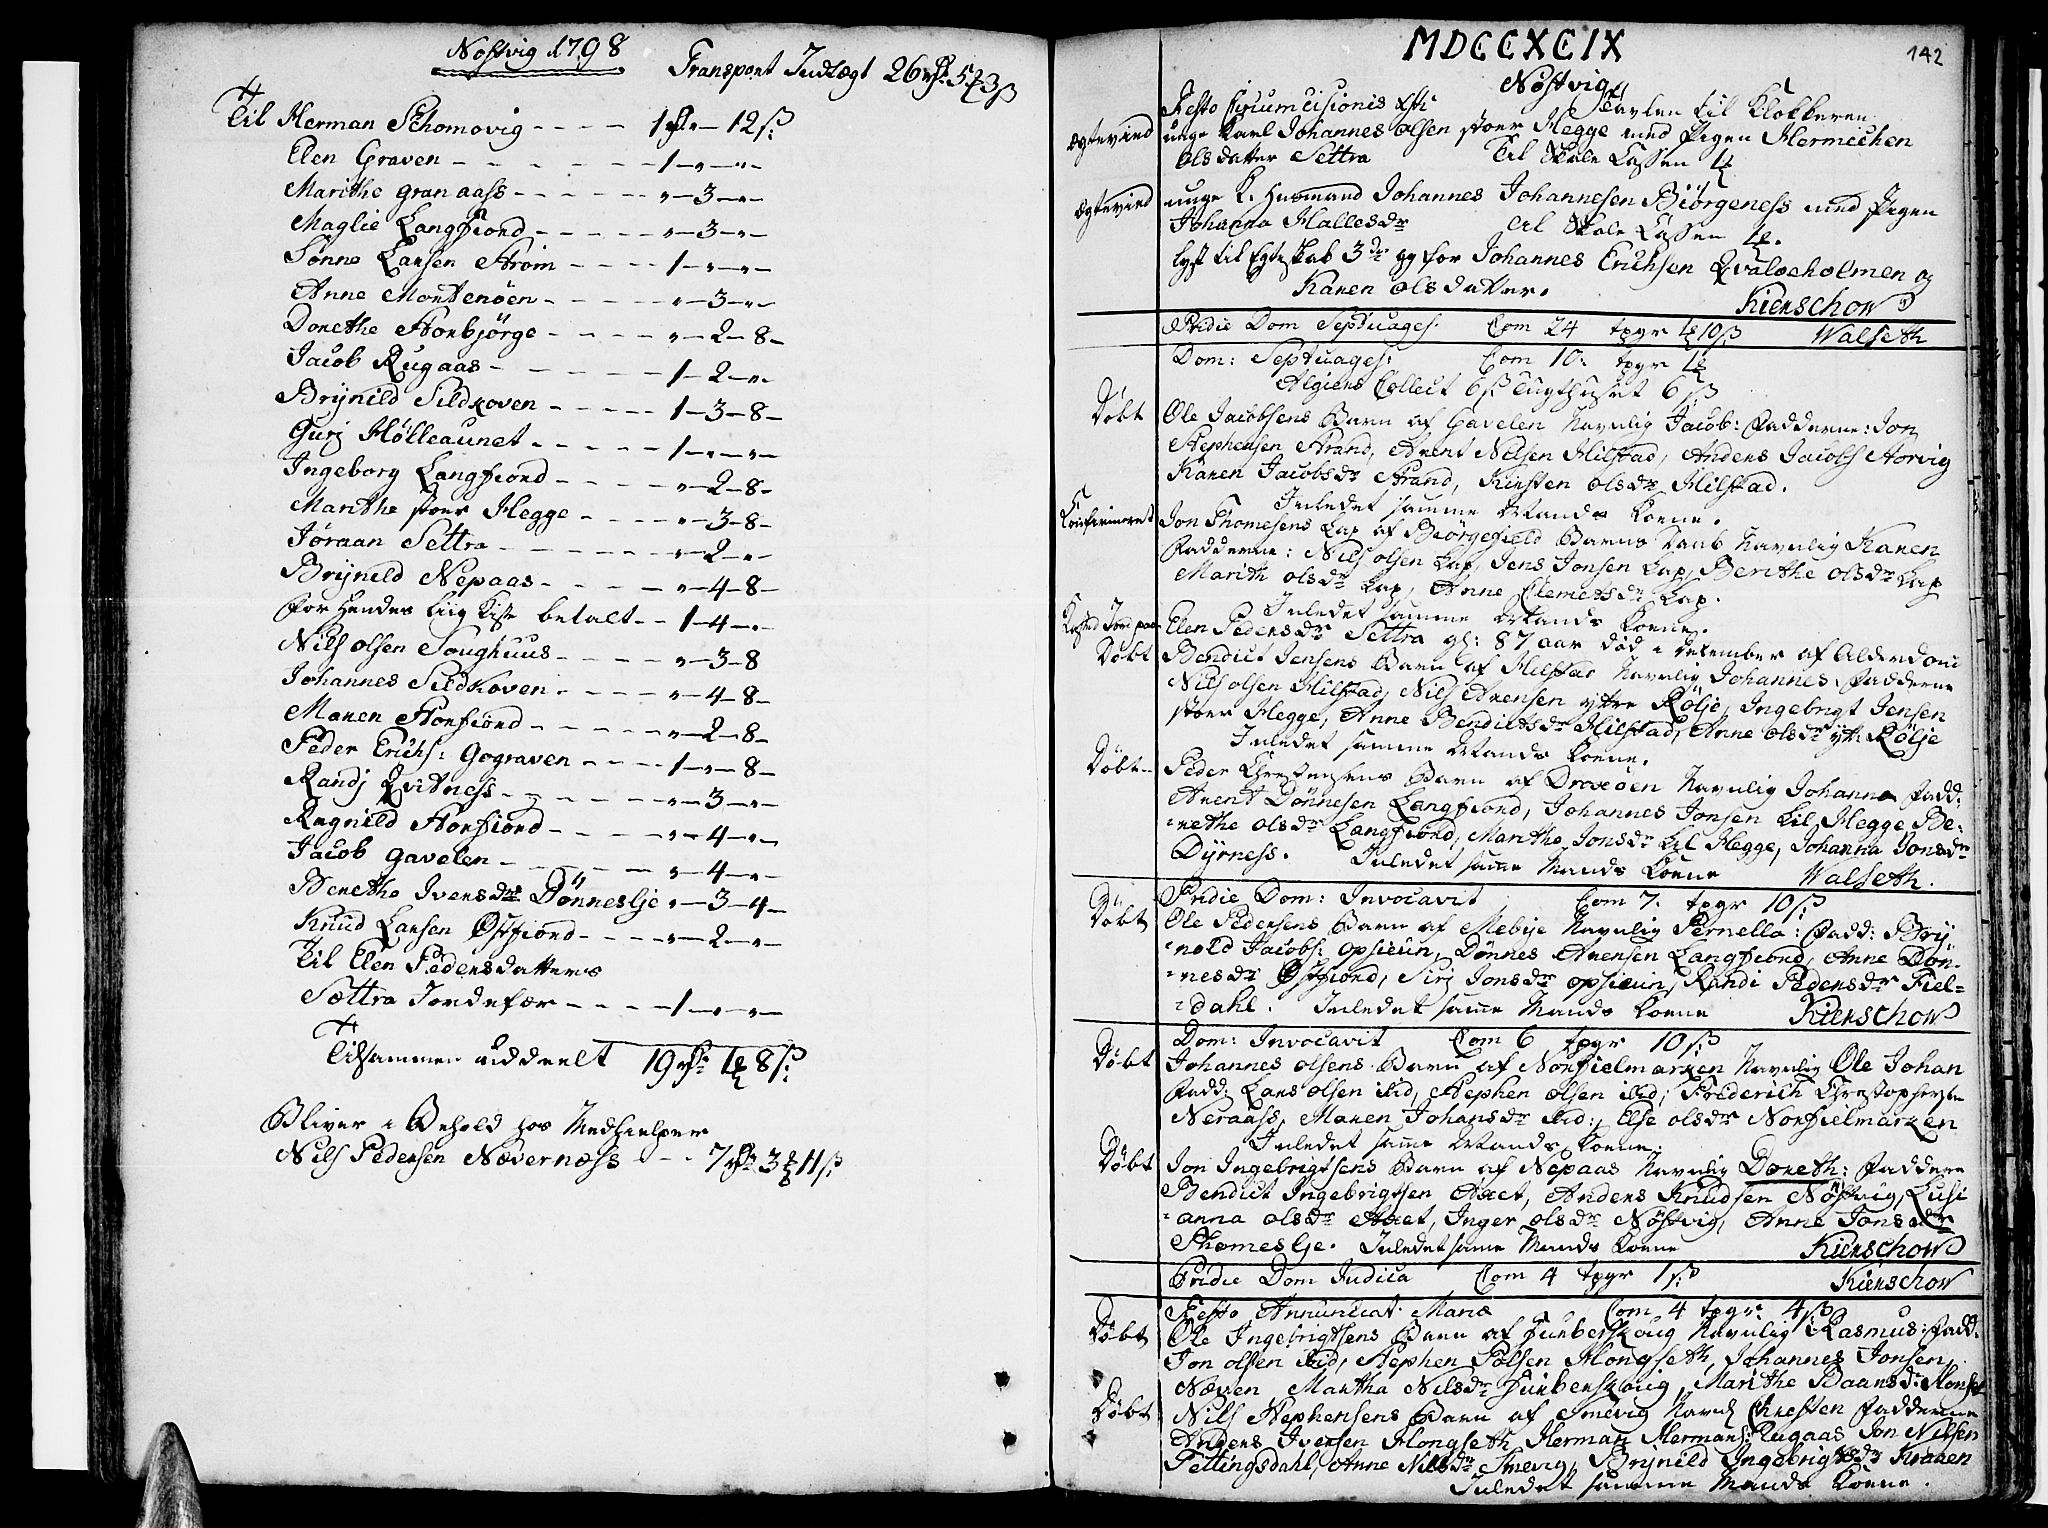 Nøstvig 1798
Transport Indlægt 26
Til Herman Schomovig - - - - 1 - 12 ß
Elen Graven - - - - - - 1 - " - "
Marithe Granaass - - - - - " - 3 - "
Maglie Langfiord - - - - - " - 3 - "
Sønne Larsen Strøm - - - - 1 - " - "
Anne Mortenøen - - - - - " - 3 - "
Dorethe Storbjørge - - - - " - 2 - 8 -
Jacob Rugaas - - - - - - 1 - 2 - "
Brynild Sildkoven - - - - 1 - 3 - 8 -
Gurj Hølleaunet - - - - - 1 - " - "
Ingeborg Langfiord - - - - " - 2 - 8 -
Marithe stoer Hegge - - - - " - 3 - 8 -
Jøraan Settra - - - - - - " - 2 - "
Brynild Nepaas - - - - - " - 4 - 8 -
for Hendes Liig Kiste betalt - - 1 - 4 - "
Nils Olsen Soughuus - - - - " - 3 - 8
Johannes Sildkoven - - - - " - 4 - 8 -
Maren Storfiord - - - - - " - 2 - 8 -
Peder Erichs: Gograven - - - - 1 - " - 8 -
Randj Qvitness - - - - - - " - 3 - "
Ragnild Storfiord - - - - - " - 4 - "
Jacob Gavelen - - - - - - " - 4 - "
Berethe Iversdr Dønneslje " - 3 - 4 -
Knud Larsen Østfiord - - - - " - 2 - "
Til Elen Pedersdatters
Sættra Jordefær - - - - 1 - " - "
Tilsammen uddeelt 19 1 8 ß
Bliver i Behold hos Medhielper
Nils Pedersen Nævernæss - - - 7 3 11 ß
142
MDCCXCIX
Nøstvig
Festo Circumcisionis Xsti Tavlen til Klokkeren
Ægteviед unge Karl Johannes Olsen stoer Hegge med Pigen Hermichen
Olsdatter Settra Til Skole Cassen 1
unge K. Husmand Johannes Johannesen Biørgeness med Pigen
Johanna Hallesdr til Skole Cassen
lyst til Egteskab 3de gg for Johannes Erichsen Qvaloeholmen og
Karen Olsdatter.
Kierschow
Pridie Dom Septuages: Com 24 tpgr 10 ß Walseth
Dom: Septuages: Com 10: tpgr
Algiers Collect 6 ß Tugthuset 6 ß
Døbt Ole Jacobsens Barn af Gavelen Navnlig Jacob: Fadderne: Jon
Stephensen Strand, Arent Nilsen Hilstad, Anders Jacobs Storvig
Karen Jacobsdr Strand, Kirsten Olsdr Hilstad.
Inledet samme Mands Koene.
Confirmeret Jon Thomesens Lap af Biørgefield Barns Daab Navnlig Karen
Fadderne: Nils Olsen Lap, Jens Jonsen Lap, Berithe Olsdr Lap
Marith Olsdr Lap, Anne Clemetsdr Lap.
Inledet samme Mands Koene.
Kasted Jord paa Elen Pedersdr Settra gl: 87 aar død i December af Alderdom
Døbt Bendict Jensens Barn af Hilstad Navnlig Johannes. Fadderne
Nils Olsen Hilstad, Nils Arensen ytre Rølje, Ingebrigt Jensen
stoer Hegge, Anne Bendictsdr Hilstad, Anne Olsdr yt: Rølje
Inledet samme Mands Koene.
Døbt Peder Christensens Barn af Draxøen Navnlig Johanna Fadd:
Arent Dønnesen Langfiord, Johannes Jonsen Lil Hegge Be:
rethe Olsdr Langfiord, Marithe Jonsdr Lil Hegge, Johanna Jonsdr
Dyrness. Inledet samme Mands Koene Walseth.
Pridie Dom: Invocavit Com 7. tpgr 10 ß
Døbt Ole Pedersens Barn af Mebye Navnlig Pernella: Fadd: Bry
nold Jacobs: Opsieun, Dønnes Arensen Langfiord, Anne Døn-
nesdr Østfiord, Sirj Jonsdr Opsieun, Randi Pedersdr Fiel-
dahl. Inledet samme Mands Koene Kierschow
Dom: Invocavit Com 6 tpgr 10 ß
Døbt Johannes Olsens Barn af Norfielmarken Navnlig Ole Johan
Fadd: Lars Olsen ibid, Stephen Olsen ibid, Friderich Christophersen
Neraass, Maren Johansdr ibid:, Else Olsdr Norfielmarken
Inledet samme Mands Koene.
Døbt Jon Ingebrigtsens Barn af Nepaas Navnlig Doreth: Faddere
Bendict Ingebrigtsen Axet, Anders Knudsen Nøstvig, Lusi
anna Olsdr Axet, Inger Olsdr Nøstvig, Anne Jonsdr
Thomeslje. Inledet same Mands Koene Kierschow
Pridie Dom Judica Com 4 tpgr 1 ß Kierschow
Festo Annunciat: Mariæ Com 4 tpgr. 4 ß
Døbt Ole Ingebrigtsens Barn af Furberskoug Navnlig Rasmus: Fadd.
Jon Olsen ibid, Stephen Polsen Hongseth, Johannes Jonsen
Næven, Martha Nilsdr Furberskoug, Marithe Baarsdr Honset
Døbt Nils Stephensens Barn af Smevig Navnl Chresten Fadderne
Anders Iversen Hongseth, Herman Hermans: Rugaas Jon Nilsen
Pettingsdahl, Anne Nilsdr Smevig, Brynild Ingebrigtsdr Kraaen
Inledet samme Mands Koene.